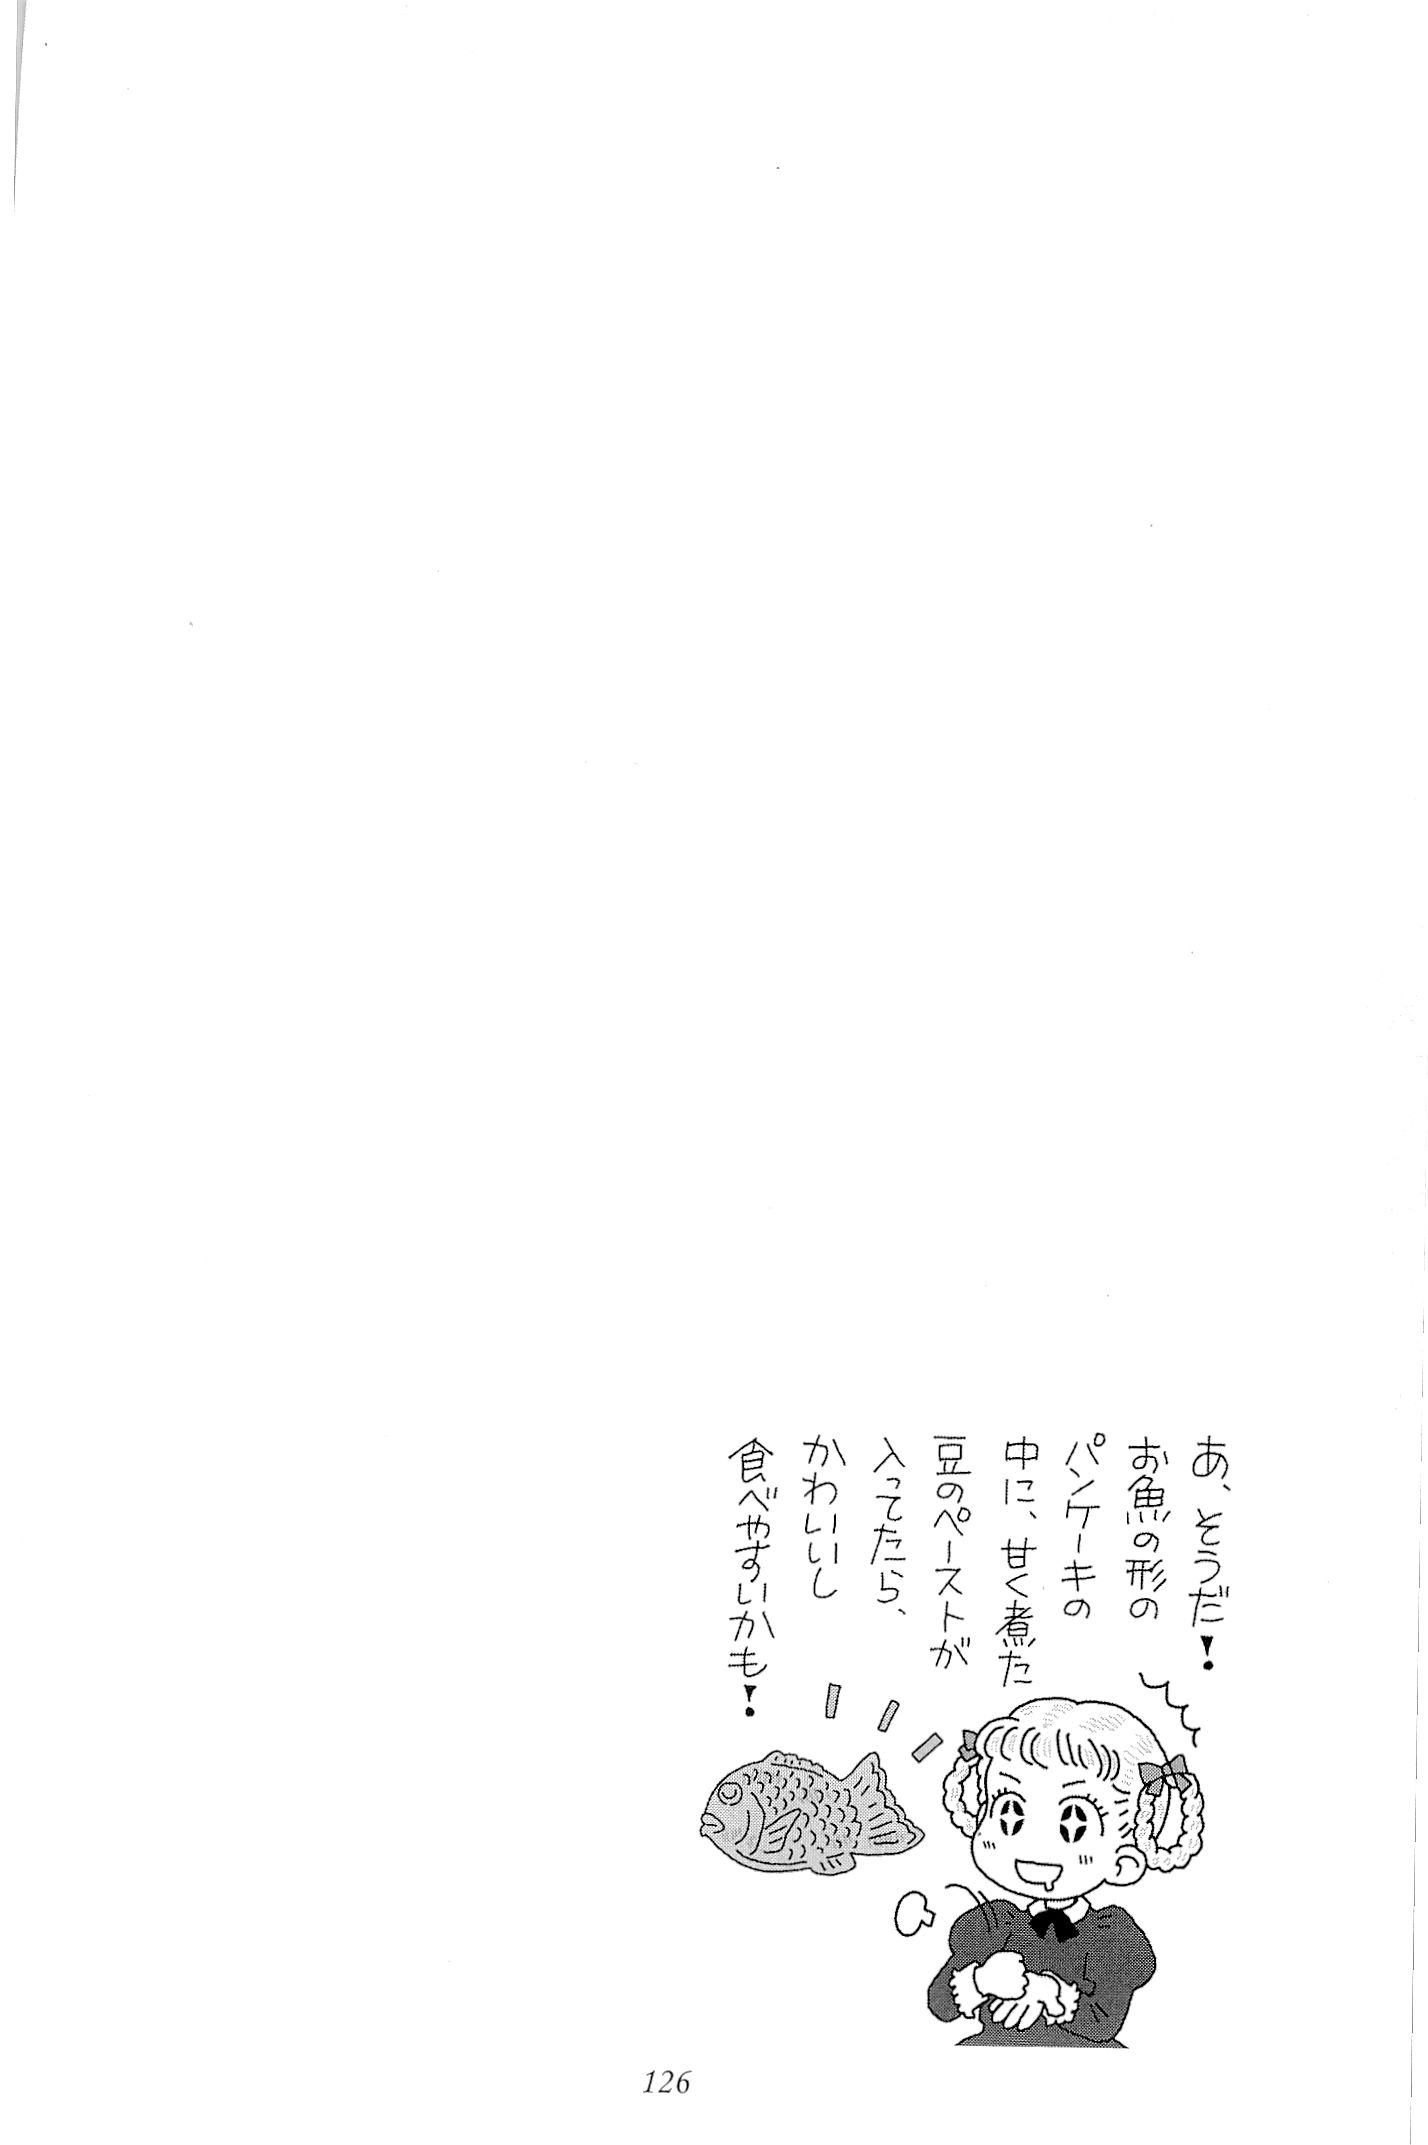 あ、そうだ！
お魚の形の
パンケーキの
中に、甘く煮た
豆のペーストが
入ってたら、
かわいいし
食べやすいかも！
126